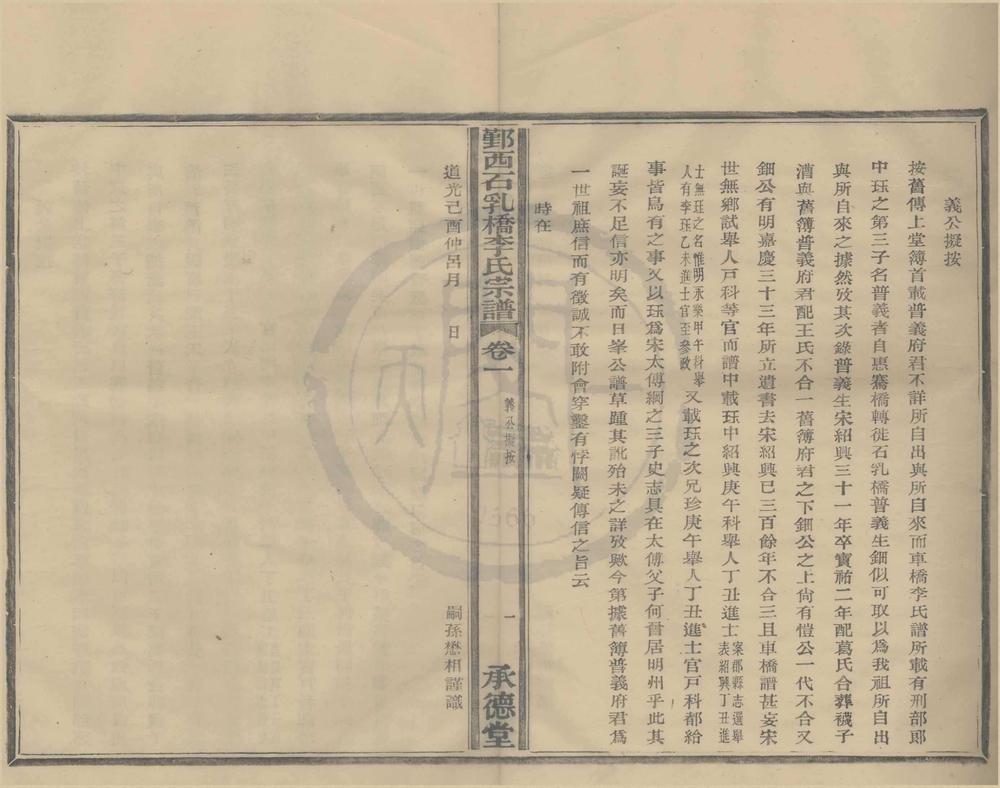 義公擬按
按舊傳上堂簿首載普義府君不詳所自出與所自來而車橋李氏譜所載有刑部郎
中珏之第三子名普義者自惠騫橋轉徙石乳橋普義生鈿似可取以爲我祖所自出
與所自來之據然攷其次錄普義生宋紹興三十一年卒寶祐二年配葛氏合葬禩子
漕與舊簿普義府君配王氏不合一舊簿府君之下鈿公之上尙有愷公一代不合又
鈿公有明嘉慶三十三年所立遺書去宋紹興已三百餘年不合三且車橋譜甚妄宋
世無鄉試舉人戸科等官而譜中載珏中紹興庚午科舉人丁丑進士案郡縣志選舉表紹興丁丑進
士無珏之名惟明永樂甲午科舉人有李珏乙未進士官至參政又載珏之次兄珍庚午舉人丁丑進士官戸科都給
事皆烏有之事又以珏爲宋太傅綱之三子史志具在太傅父子何嘗居明州乎此其
誕妄不足信亦明矣而日峯公譜草踵其訛殆未之詳攷歟今第據舊簿普義府君爲
一世祖庶信而有徵誠不敢附會穿鑿有悖闕疑傳信之旨云
時在
鄞西石乳橋李氏宗譜
卷一
義公擬按
一
承德堂
道光己酉仲呂月 日
嗣孫懋相謹識